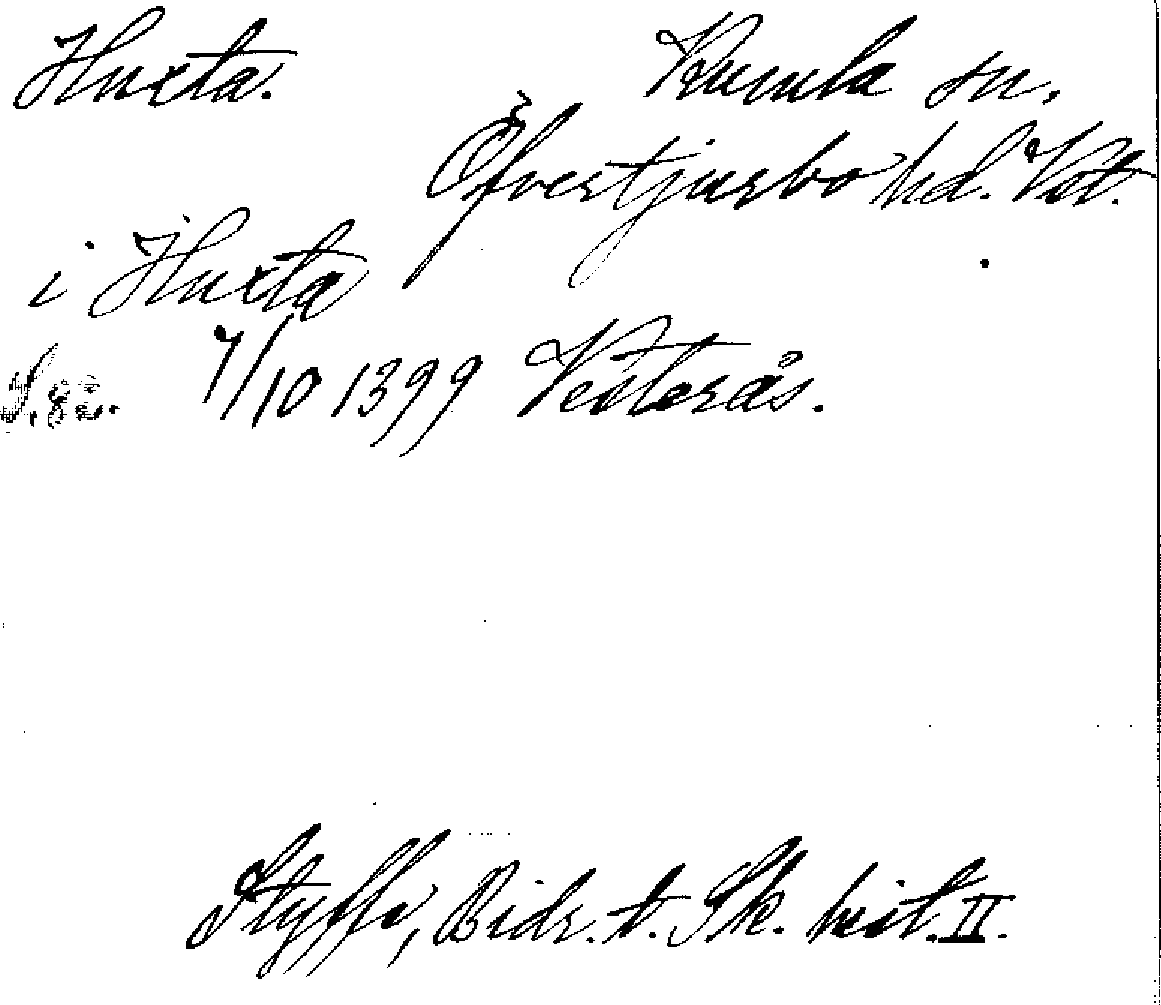 Huxta. Kumla sn.
Öfvertjurbo hd. Vstm.
i Huxta
S. 82. 7/10 1399 Vesterås.
Styffe, Bidr. t. Sk. hist. II.